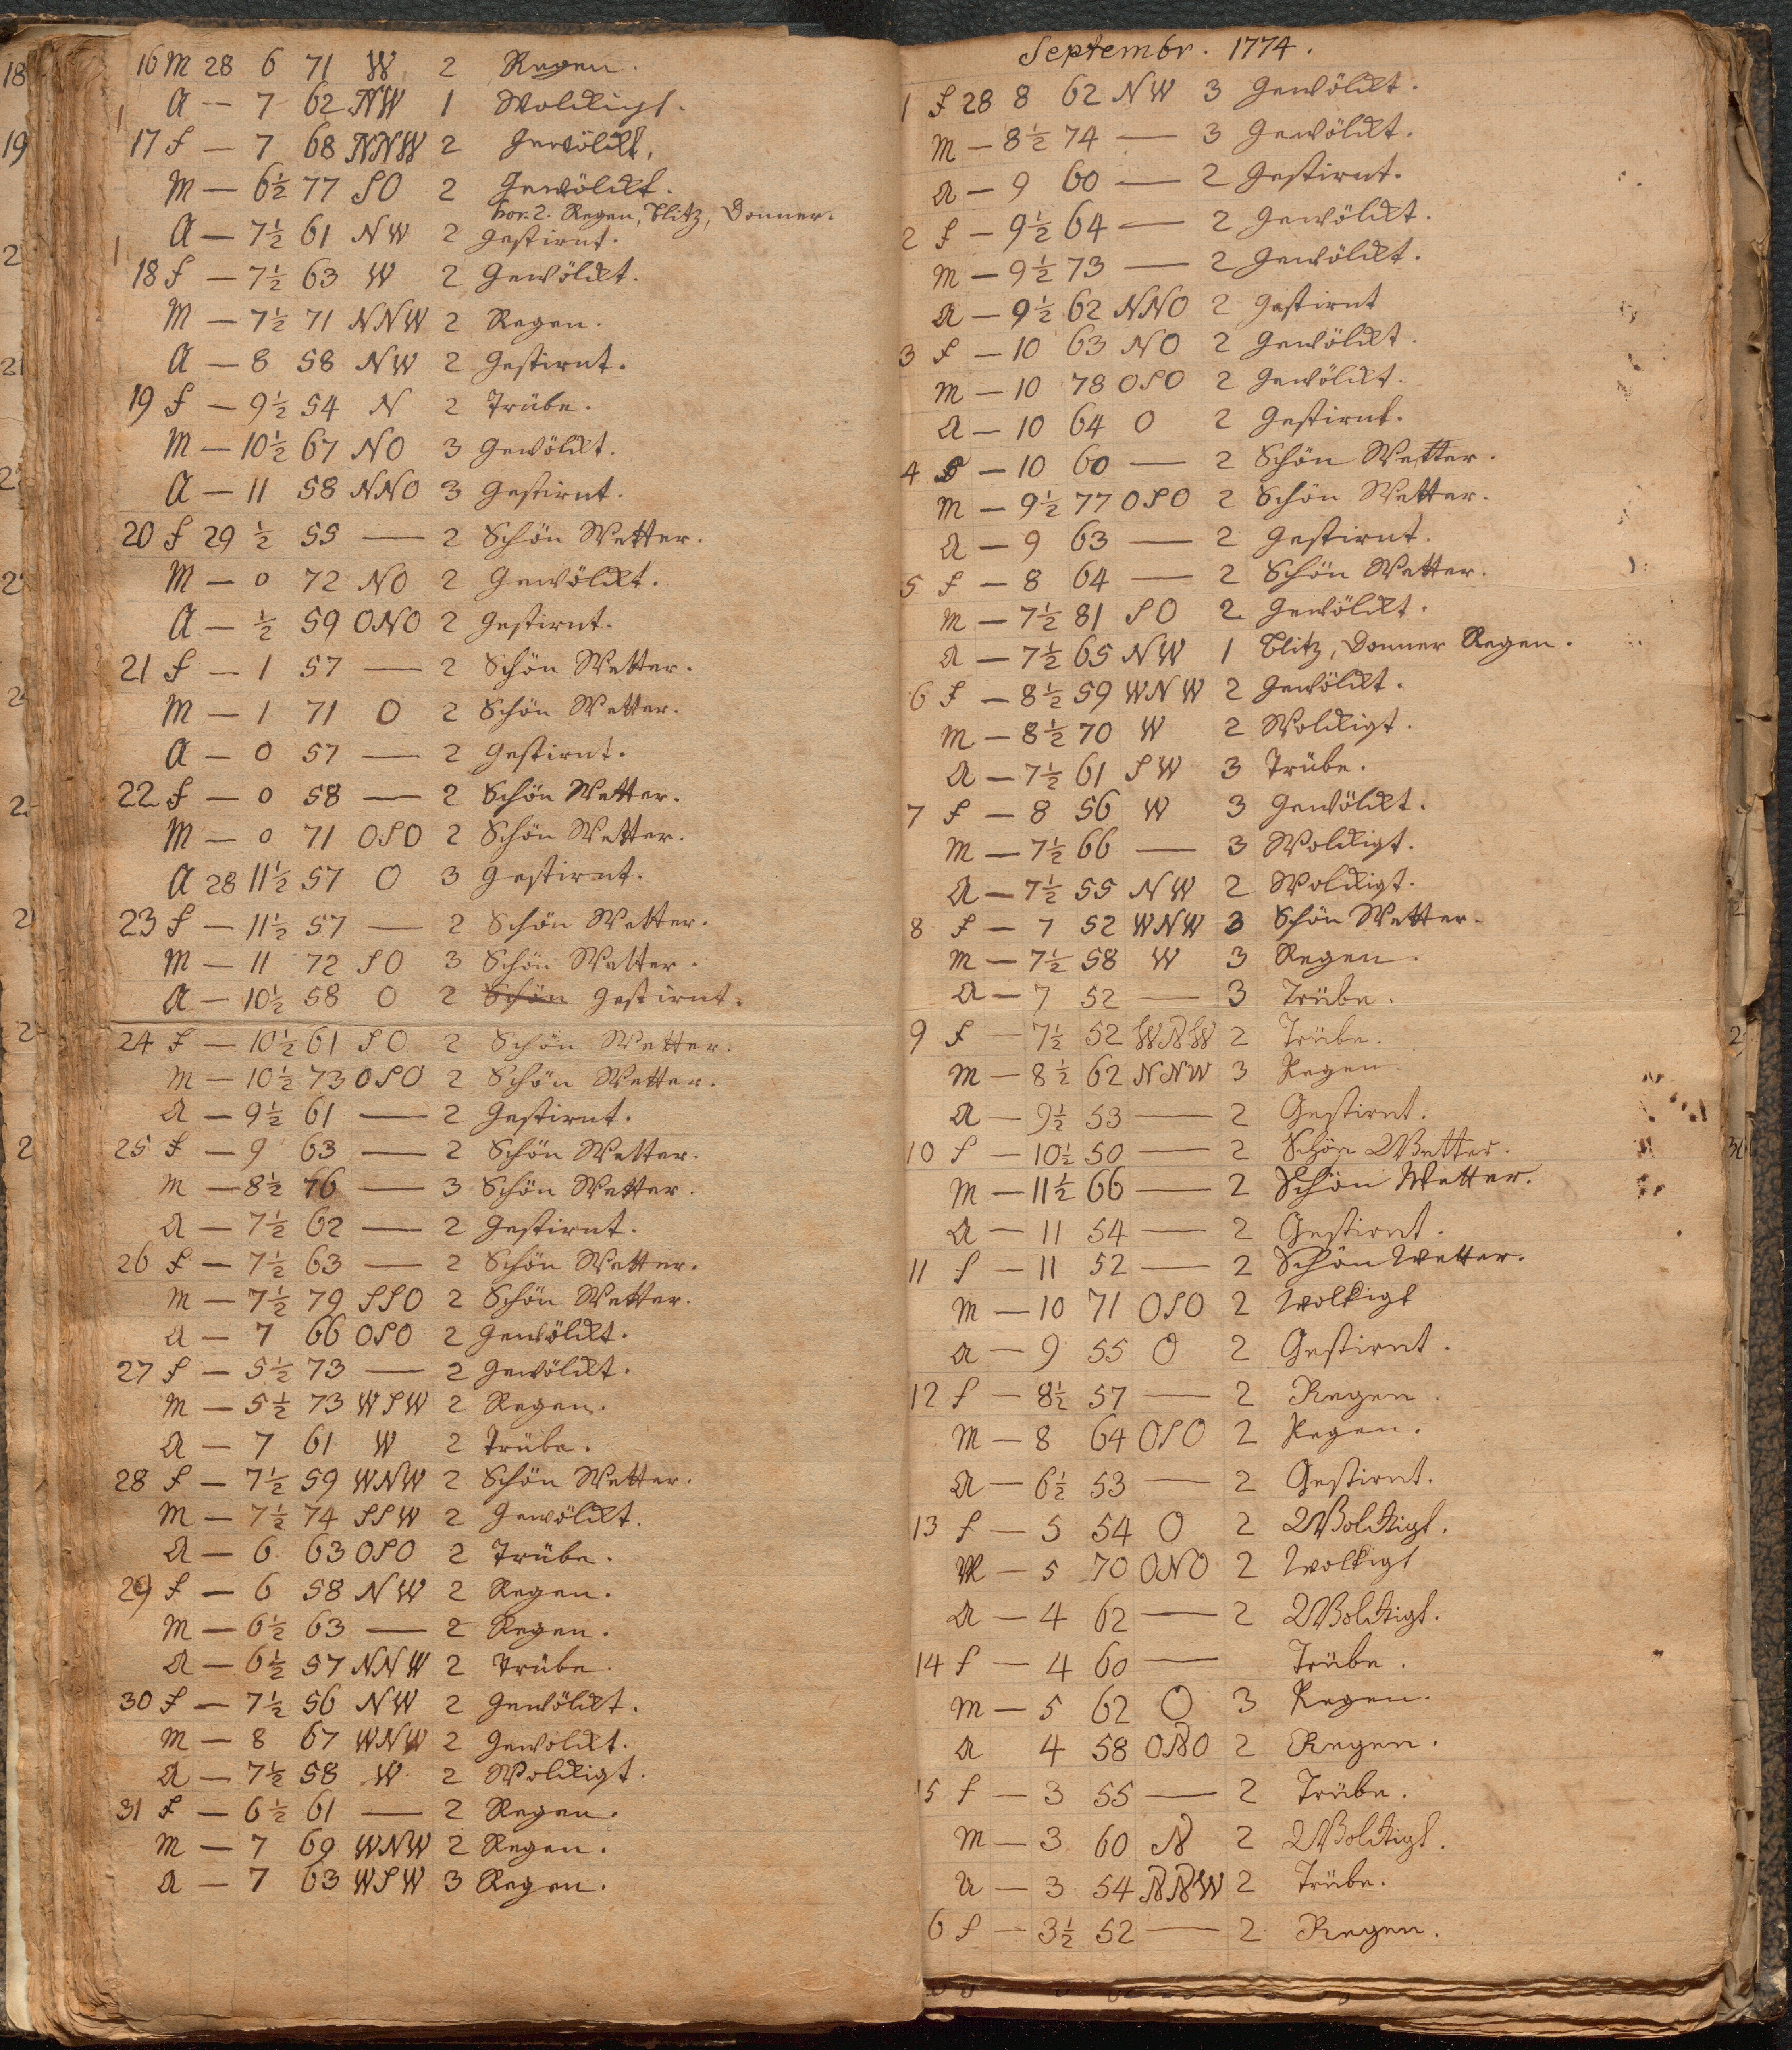 16 M 28 6 71 W 2 Regen.
A — 7 62 NW 1 Wolkigt.
17 f — 7 68 NNW 2 Gewölkt.
M — 6½ 77 SO 2 Gewölkt.
hor. 2. Regen, Blitz, Donner.
A — 7½ 61 NW 2 Gestirnt.
18 f — 7½ 63 W 2 Gewölkt.
M — 7½ 71 NNW 2 Regen.
A — 8 58 NW 2 Gestirnt.
19 f — 9½ 54 N 2 Trübe.
M — 10½ 67 NO 3 Gewölkt.
A — 11 58 NNO 3 Gestirnt.
20 f 29 ½ 55 — 2 Schön Wetter.
M — 0 72 NO 2 Gewölkt.
A — ½ 59 ONO 2 Gestirnt.
21 f — 1 57 — 2 Schön Wetter.
M — 1 71 O 2 Schön Wetter.
A — 0 57 — 2 Gestirnt.
22 f — 0 58 — 2 Schön Wetter.
M — 0 71 OSO 2 Schön Wetter.
A 28 11½ 57 O 3 Gestirnt.
23 f — 11½ 57 — 2 Schön Wetter.
M — 11 72 SO 3 Schön Wetter.
A — 10½ 58 O 2 Schön Gestirnt.
24 f — 10½ 61 SO 2 Schön Wetter.
M — 10½ 73 OSO 2 Schön Wetter.
A — 9½ 61 — 2 Gestirnt.
25 f — 9 63 — 2 Schön Wetter.
M — 8½ 76 — 3 Schön Wetter.
A — 7½ 62 — 2 Gestirnt.
26 f — 7½ 63 — 2 Schön Wetter.
M — 7½ 79 SSO 2 Schön Wetter.
A — 7 66 OSO 2 Gewölkt.
27 f — 5½ 73 — 2 Gewölkt.
M — 5½ 73 WSW 2 Regen.
A — 7 61 W 2 Trübe.
28 f — 7½ 59 WNW 2 Schön Wetter.
M — 7½ 74 SSW 2 Gewölkt.
A — 6 63 OSO 2 Trübe.
29 f — 6 58 NW 2 Regen.
M — 6½ 63 — 2 Regen.
A — 6½ 57 NNW 2 Trübe.
30 f — 7½ 56 NW 2 Gewölkt.
M — 8 67 WNW 2 Gewölkt.
A — 7½ 58 W 2 Wolkigt.
31 f — 6½ 61 — 2 Regen.
M — 7 69 WNW 2 Regen.
A — 7 63 WSW 3 Regen.
Septembr. 1774.
1 f 28 8 62 NW 3 Gewölkt.
M — 8½ 74 — 3 Gewölkt.
A — 9 60 — 2 Gestirnt.
2 f — 9½ 64 — 2 Gewölkt.
M — 9½ 73 — 2 Gewölkt.
A — 9½ 62 NNO 2 Gestirnt
3 f — 10 63 NO 2 Gewölkt.
M — 10 78 OSO 2 Gewölkt.
A — 10 64 O 2 Gestirnt.
4 f — 10 60 — 2 Schön Wetter.
M — 9½ 77 OSO 2 Schön Wetter.
A — 9 63 — 2 Gestirnt.
5 f — 8 64 — 2 Schön Wetter.
M — 7½ 81 SO 2 Gewölkt.
A — 7½ 65 NW 1 Blitz, Donner Regen.
6 f — 8½ 59 WNW 2 Gewölkt.
M — 8½ 70 W 2 Wolkigt.
A — 7½ 61 SW 3 Trübe.
7 f — 8 56 W 3 Gewölkt.
M — 7½ 66 — 3 Wolkigt.
A — 7½ 55 NW 2 Wolkigt.
8 f — 7 52 WNW 3 Schön Wetter.
M — 7½ 58 W 3 Regen.
A — 7 52 — 3 Trübe.
9 f — 7½ 52 WNW 2 Trübe.
M — 8½ 62 NNW 3 Regen
A — 9½ 53 — 2 Gestirnt.
10 f — 10½ 50 — 2 Schön Wetter.
M — 11½ 66 — 2 Schön Wetter.
A — 11 54 — 2 Gestirnt.
11 f — 11 52 — 2 Schön Wetter.
M — 10 71 OSO 2 Wolkigt
A — 9 55 O 2 Gestirnt.
12 f — 8½ 57 — 2 Regen.
M — 8 64 OSO 2 Regen.
A — 6½ 53 — 2 Gestirnt.
13 f — 5 54 O 2 Wolkigt.
M — 5 70 ONO 2 Wolkigt
A — 4 62 — 2 Wolkigt.
14 f — 4 60 — Trübe.
M — 5 62 O 3 Regen.
A 4 58 ONO 2 Regen.
15 f — 3 55 — 2 Trübe.
M — 3 60 N 2 Wolkigt.
A — 3 54 NNW 2 Trübe.
6 f — 3½ 52 — 2 Regen.